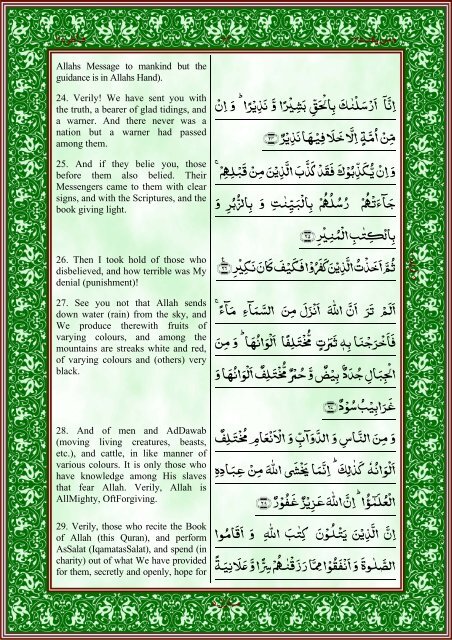 Allahs Message to mankind but the
guidance is in Allahs Hand).
24. Verily! We have sent you with
the truth, a bearer of glad tidings, and
a warner. And there never was a
nation but a warner had passed
among them.
25. And if they belie you, those
before them also belied. Their
Messengers came to them with clear
signs, and with the Scriptures, and the
book giving light.
26. Then I took hold of those who
disbelieved, and how terrible was My
denial (punishment)!
27. See you not that Allah sends
down water (rain) from the sky, and
We produce therewith fruits of
varying colours, and among the
mountains are streaks white and red,
of varying colours and (others) very
black.
28. And of men and AdDawab
(moving living creatures, beasts,
etc.), and cattle, in like manner of
various colours. It is only those who
have knowledge among His slaves
that fear Allah. Verily, Allah is
AllMighty, OftForgiving.
29. Verily, those who recite the Book
of Allah (this Quran), and perform
AsSalat (IqamatasSalat), and spend (in
charity) out of what We have provided
for them, secretly and openly, hope for
اِنَّاۤ اَرْسَلْنٰكَ بِالْحَقِّ بَشِيْرًا وَّ نَذِيْرًا ؕ وَ اِنْ
مِّنْ اُمَّةٍ اِلَّا خَلَا فِيْهَا نَذِيْرٌ ﴿۲۴﴾
وَ اِنْ يُّكَذِّبُوْكَ فَقَدْ كَذَّبَ الَّذِيْنَ مِنْ قَبْلِهِمْ ۚ
جَآءَتْهُمْ رُسُلُهُمْ بِالْبَيِّنٰتِ وَ بِالزُّبُرِ وَ
بِالْكِتٰبِ الْمُنِيْرِ ﴿۲۵﴾
ثُمَّ اَخَذْتُ الَّذِيْنَ كَفَرُوْا فَكَيْفَ كَانَ نَكِيْرِ ﴿۲۶﴾
اَلَمْ تَرَ اَنَّ اللّٰهَ اَنْزَلَ مِنَ السَّمَآءِ مَآءً ۚ
فَاَخْرَجْنَا بِهٖ ثَمَرٰتٍ مُّخْتَلِفًا اَلْوَانُهَا ؕ وَ مِنَ
الْجِبَالِ جُدَدٌۢ بِيْضٌ وَّ حُمْرٌ مُّخْتَلِفٌ اَلْوَانُهَا وَ
غَرَابِيْبُ سُوْدٌ ﴿۲۷﴾
وَ مِنَ النَّاسِ وَ الدَّوَآبِّ وَ الْاَنْعَامِ مُخْتَلِفٌ
اَلْوَانُهٗ كَذٰلِكَ ؕ اِنَّمَا يَخْشَى اللّٰهَ مِنْ عِبَادِهِ
الْعُلَمٰٓؤُا ؕ اِنَّ اللّٰهَ عَزِيْزٌ غَفُوْرٌ ﴿۲۸﴾
اِنَّ الَّذِيْنَ يَتْلُوْنَ كِتٰبَ اللّٰهِ وَ اَقَامُوا
الصَّلٰوةَ وَ اَنْفَقُوْا مِمَّا رَزَقْنٰهُمْ سِرًّا وَّ عَلَانِيَةً